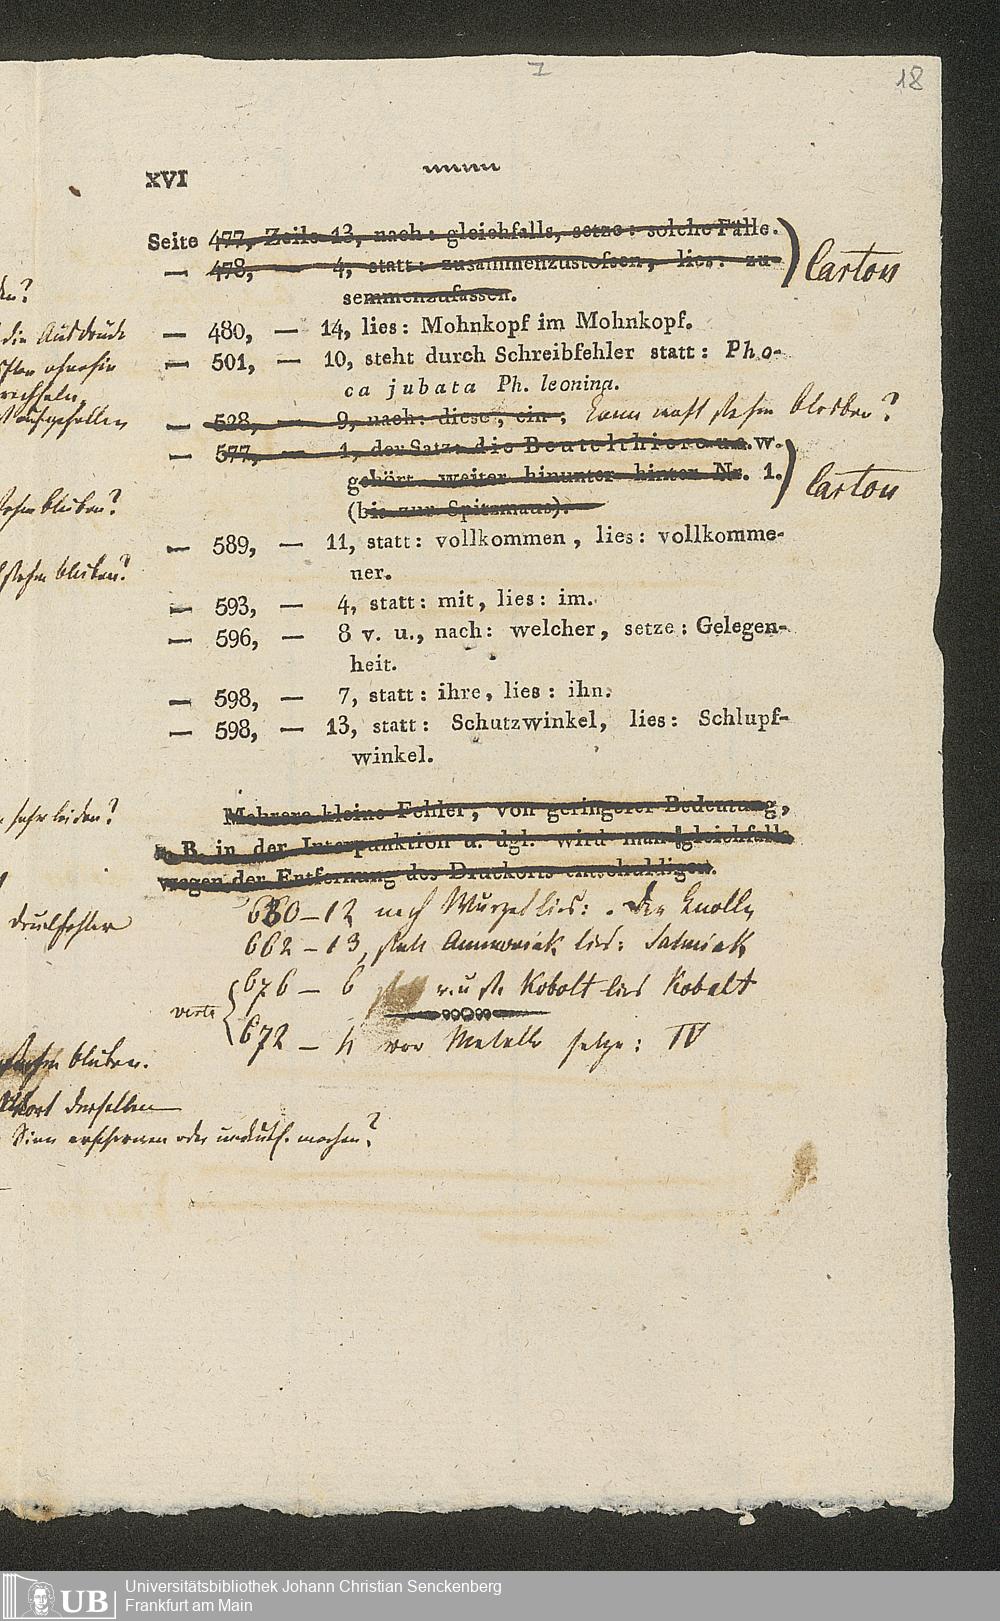 I
18
XVI
Seite 477, Zeile 13, nach: gleichfalls, setze: solche Fälle.
— 478, — 4, statt: zusammenzustofsen, lies: zu-
semmenzufassen.
Carton
— 480, — 14, lies: Mohnkopf im Mohnkopf.
— 501, — 10, steht durch Schreibfehler statt: Pho-
ca jubata Ph. leonina.
— 528, — 9, nach: diese, ein, kann wohl stehen bleiben?
— 577, — 1, der Satz: die Beutelthiere u.s.w.
gehört weiter hinunter hinter Nr. 1.
(bis zur Spitzmaus).
Carton
— 589, — 11, statt: vollkommen, lies: vollkomme-
ner.
— 593, — 4, statt: mit, lies: im.
— 596, — 8 v. u., nach: welcher, setze: Gelegen-
heit.
— 598, — 7, statt: ihre, lies: ihn.
— 598, — 13, statt: Schutzwinkel, lies: Schlupf-
winkel.
Mehrere kleine Fehler, von geringerer Bedeutung,
z. B. in der Interpunktion u. dgl. wird man gleichfalls
wegen der Entfernung des Druckorts entschuldigen.
660 — 12 nach Wurzel lies: . Die Knolle
662 — 13, statt Ammoniak lies: Salmiak
676 — 6 v. u. st. Kobolt lies Kobalt
verte
672 — 4 vor Metalle setze: IV
die Ausdrücke
aufgefallen
stehn bleiben?
stehn bleiben?
sehr leiden?
Druckfehler
stehn bleiben.
Wort derselben
Sinn erschweren oder undeutl. machen?
UB
Universitätsbibliothek Johann Christian Senckenberg
Frankfurt am Main